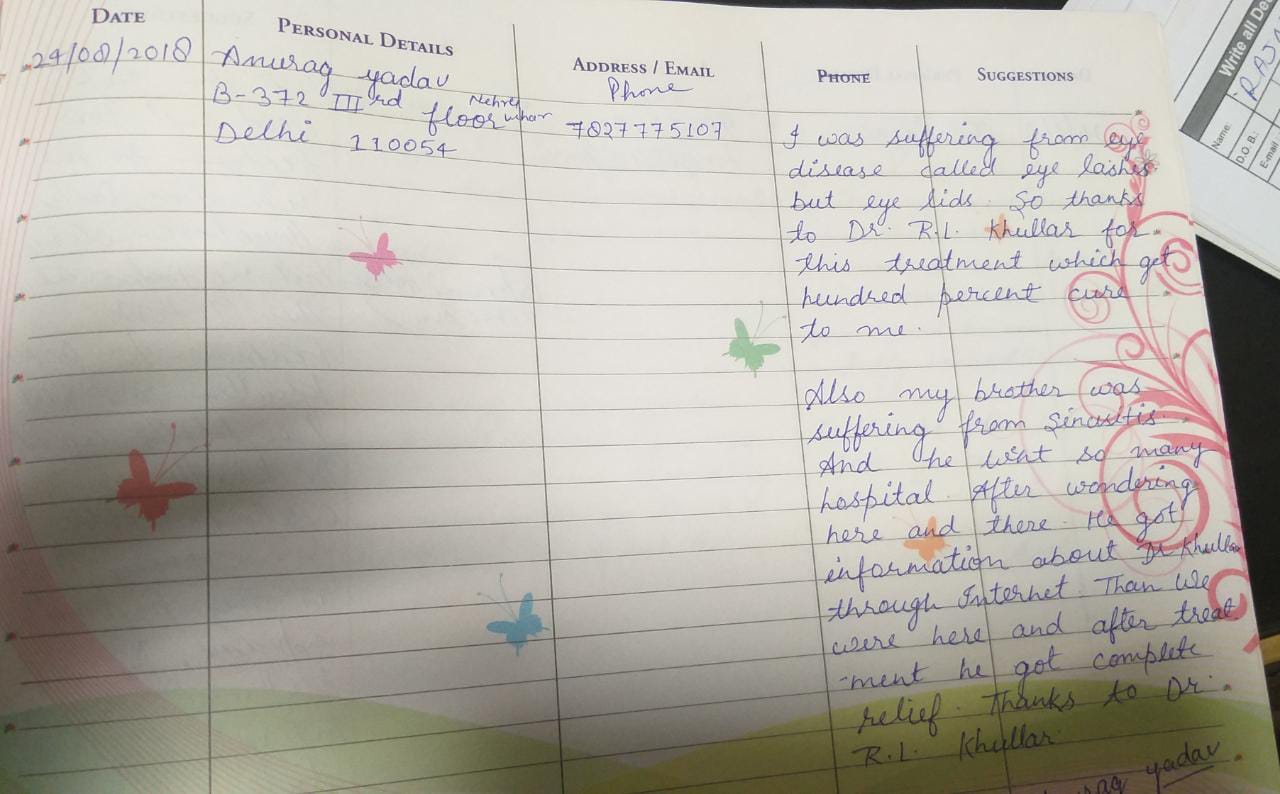 DATE PERSONAL DETAILS ADDRESS / EMAIL PHONE SUGGESTIONS
24/08/2018
Anurag yadav
B-372 IIIrd floor Nehru vihar
Delhi 110054
Phone
7827775107
I was suffering from eye
disease called eye lashes
but eye lids. So thanks
to Dr. R.L. Khullar for
this treatment which get
hundred percent cure
to me.
Also my brother was
suffering from Sinusitis.
And he went so many
hospital. After wondering
here and there. He got
information about Dr Khullar
through Internet. Than we
were here and after treat
-ment he got complete
relief. Thanks to Dr.
R.L. Khullar.
yadav
Write all De
Name:
D.O.B.:
E-mail
RAJA